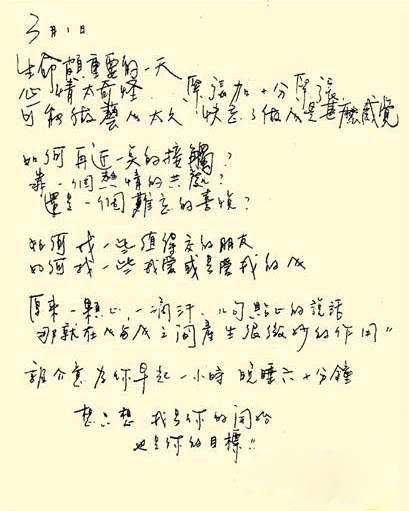 3月1日
生命頗重要的一天
心情太奇怪 緊張加十分緊張
可能做藝人太久 快忘了做人是甚麼感覺
如何再近一點的接觸?
靠一個熱情的共鳴?
還是一個難忘的喜悅?
如何找一些值得交的朋友
如何找一些我愛或是愛我的人
原來一顆心,一滴汗,几句點心的說話
那就在人与人之間產生很微妙的作用"
誰介意為你早起一小時 晚睡六十分鐘
想只想 我是你的開始
也是你的目標"